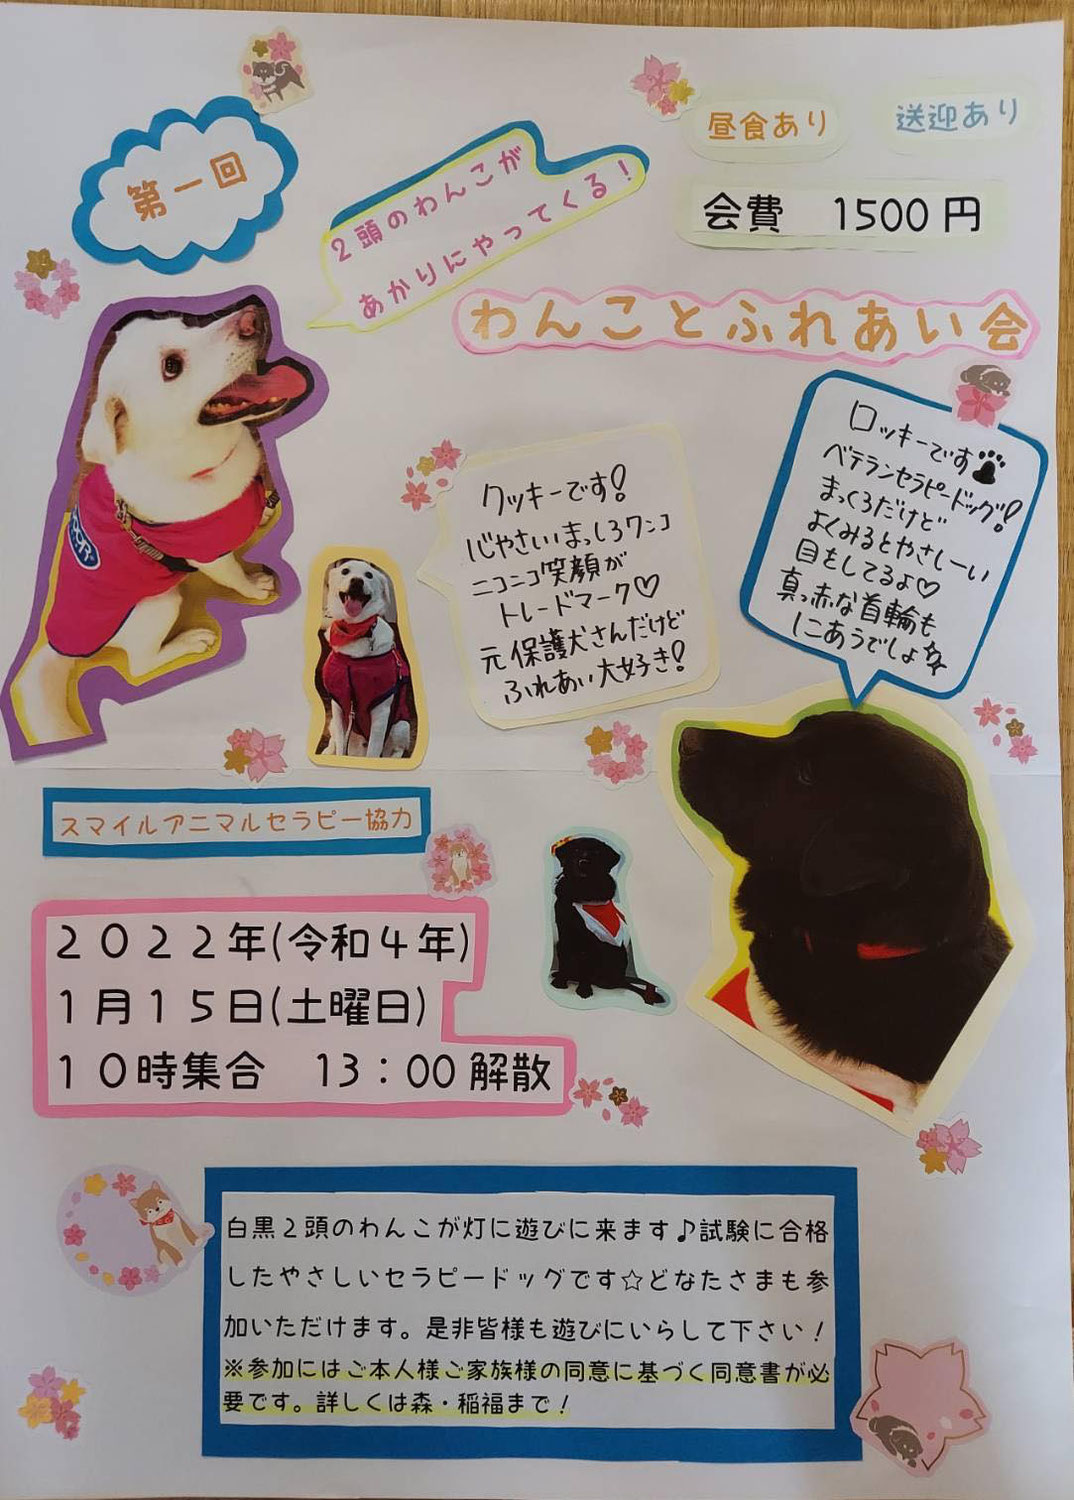 第一回
2頭のわんこが
あかりにやってくる！
昼食あり
送迎あり
会費　1500円
わんことふれあい会
クッキーです！
じゃさいいまっしろワンコ
ニコニコ笑顔が
トレードマーク♡
元保護犬さんだけど
ふれあい大好き！
ロッキーです
ベテランセラピードッグ！
まっくろだけど
よくみるとやさしーい
目をしてるよ♡
真っ赤な首輪も
にあうでしょ☆
スマイルアニマルセラピー協力
２０２２年(令和４年)
１月１５日(土曜日)
１０時集合　13：00解散
白黒２頭のわんこが灯に遊びに来ます♪試験に合格
したやさしいセラピードッグです☆どなたさまも参
加いただけます。是非皆様も遊びにいらして下さい！
※参加にはご本人様ご家族様の同意に基づく同意書が必
要です。詳しくは森・稲福まで！